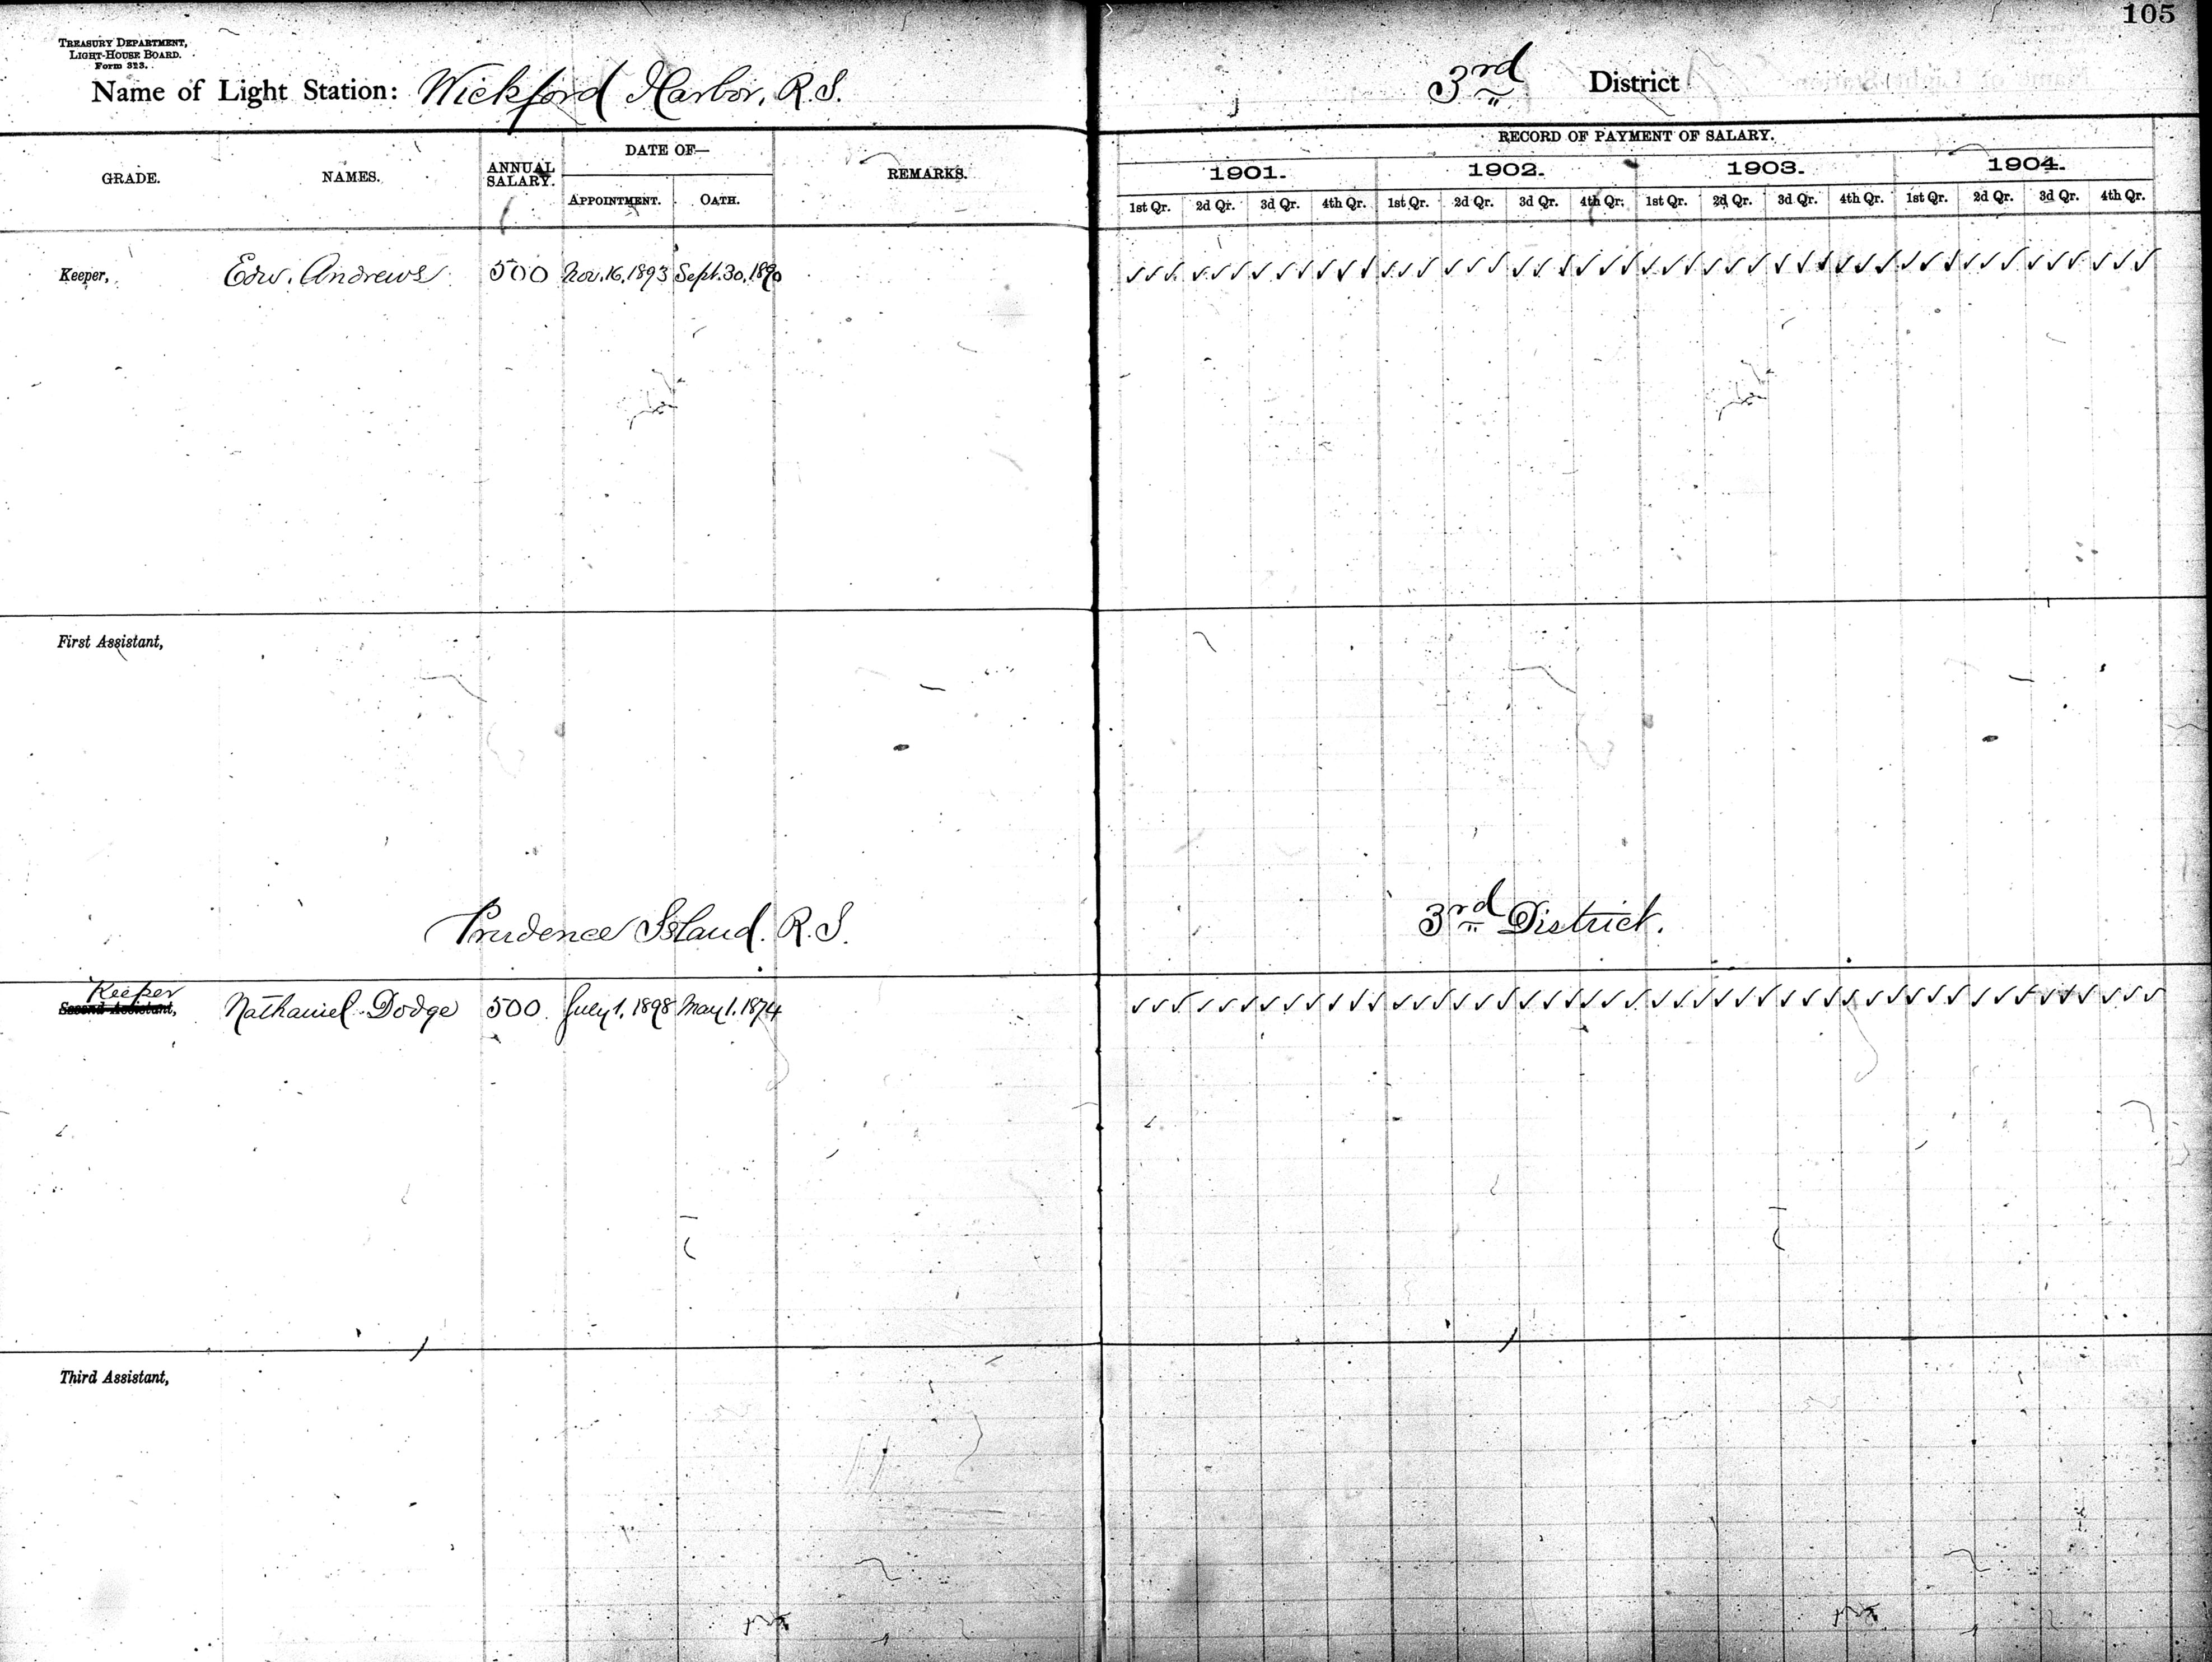 105
TREASURY DEPARTMENT,
LIGHT-HOUSE BOARD.
Form 323.
Name of Light Station: Wickford Harbor, R.I.
3rd District
GRADE. NAMES. ANNUAL SALARY. DATE OF— REMARKS.
APPOINTMENT. OATH.
RECORD OF PAYMENT OF SALARY.
1901. 1902. 1903. 1904.
1st Qr. 2d Qr. 3d Qr. 4th Qr. 1st Qr. 2d Qr. 3d Qr. 4th Qr. 1st Qr. 2d Qr. 3d Qr. 4th Qr. 1st Qr. 2d Qr. 3d Qr. 4th Qr.
Keeper, Edw. Andrews 500 Nov. 16, 1893 Sept. 30, 1890
First Assistant,
Prudence Island. R.I. 3rd District.
Keeper
Second Assistant, Nathaniel Dodge 500. July 1, 1898 May 1, 1874
Third Assistant,